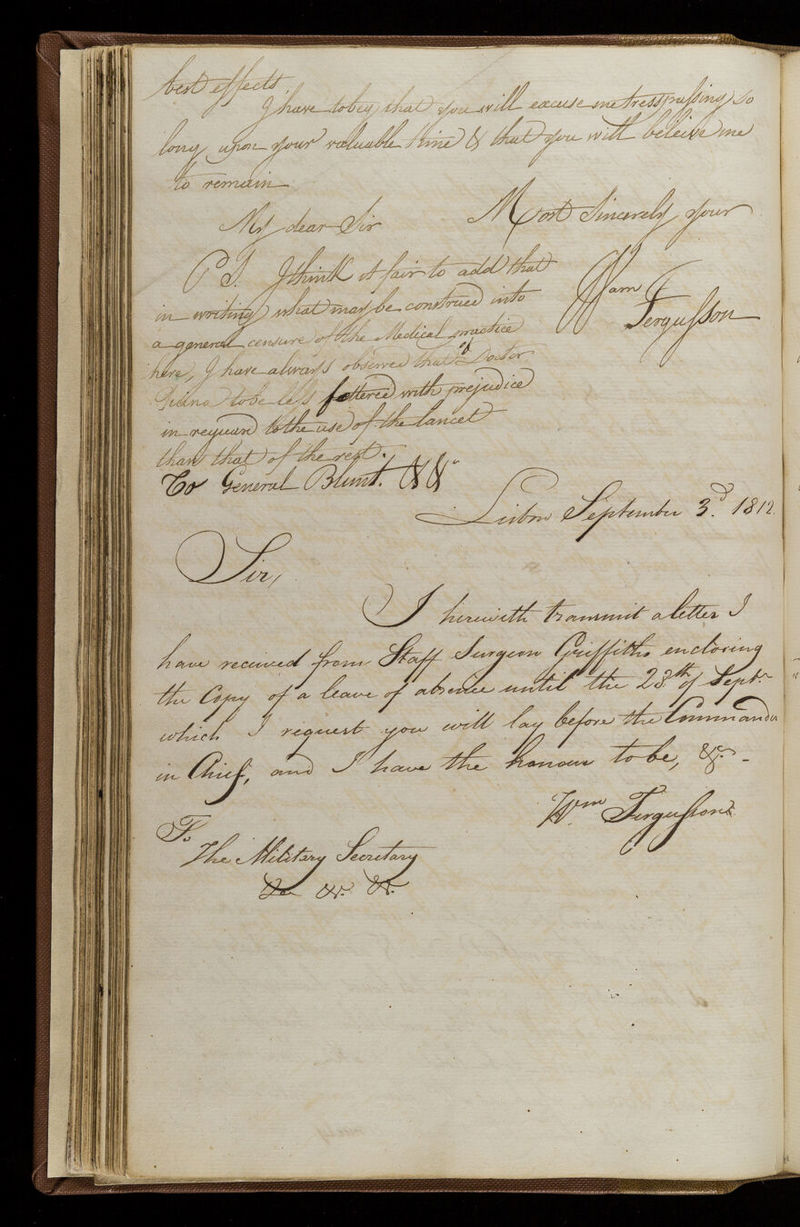 best effects
I have to beg that you will excuse me tresspassing so
long upon your valuable time & that you will beleive me
to remain
My dear Sir Most Sincerely your
Wam Fergusson
P S. I think it fair to add that
in writing what may be construed into
a general censure of the Medical practice
here, I have always observed that of Doctor
to be less fettered with prejudice
in reguard to the use of the lancet
than that of the rest.
To General Blunt. &&
Lisbon September 3.d 1812.
Sir,
I herewith transmit a letter I
have received from Staff Surgeon Griffiths enclosing
the Copy of a leave of absence until the 28th of Septr
which I request you will lay before the Commander
in Chief, and I have the honour to be, &c -
Wm Fergusson
To
The Military Secretary
&c &c. &c.